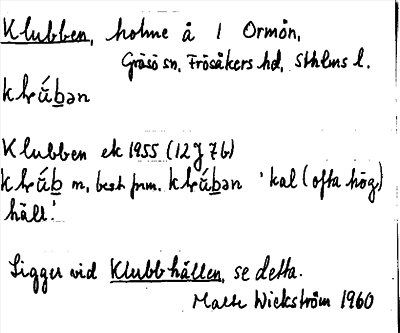 Klubben, holme å 1 Ormön,
Gräsö sn, Frösåkers hd, Sthlms l.
Klubben ek 1955 (12J 7b)
m, best frm. 'kal (ofta hög)
häll'.
Ligger vid Klubbhällen, se detta.
Wickström 1960